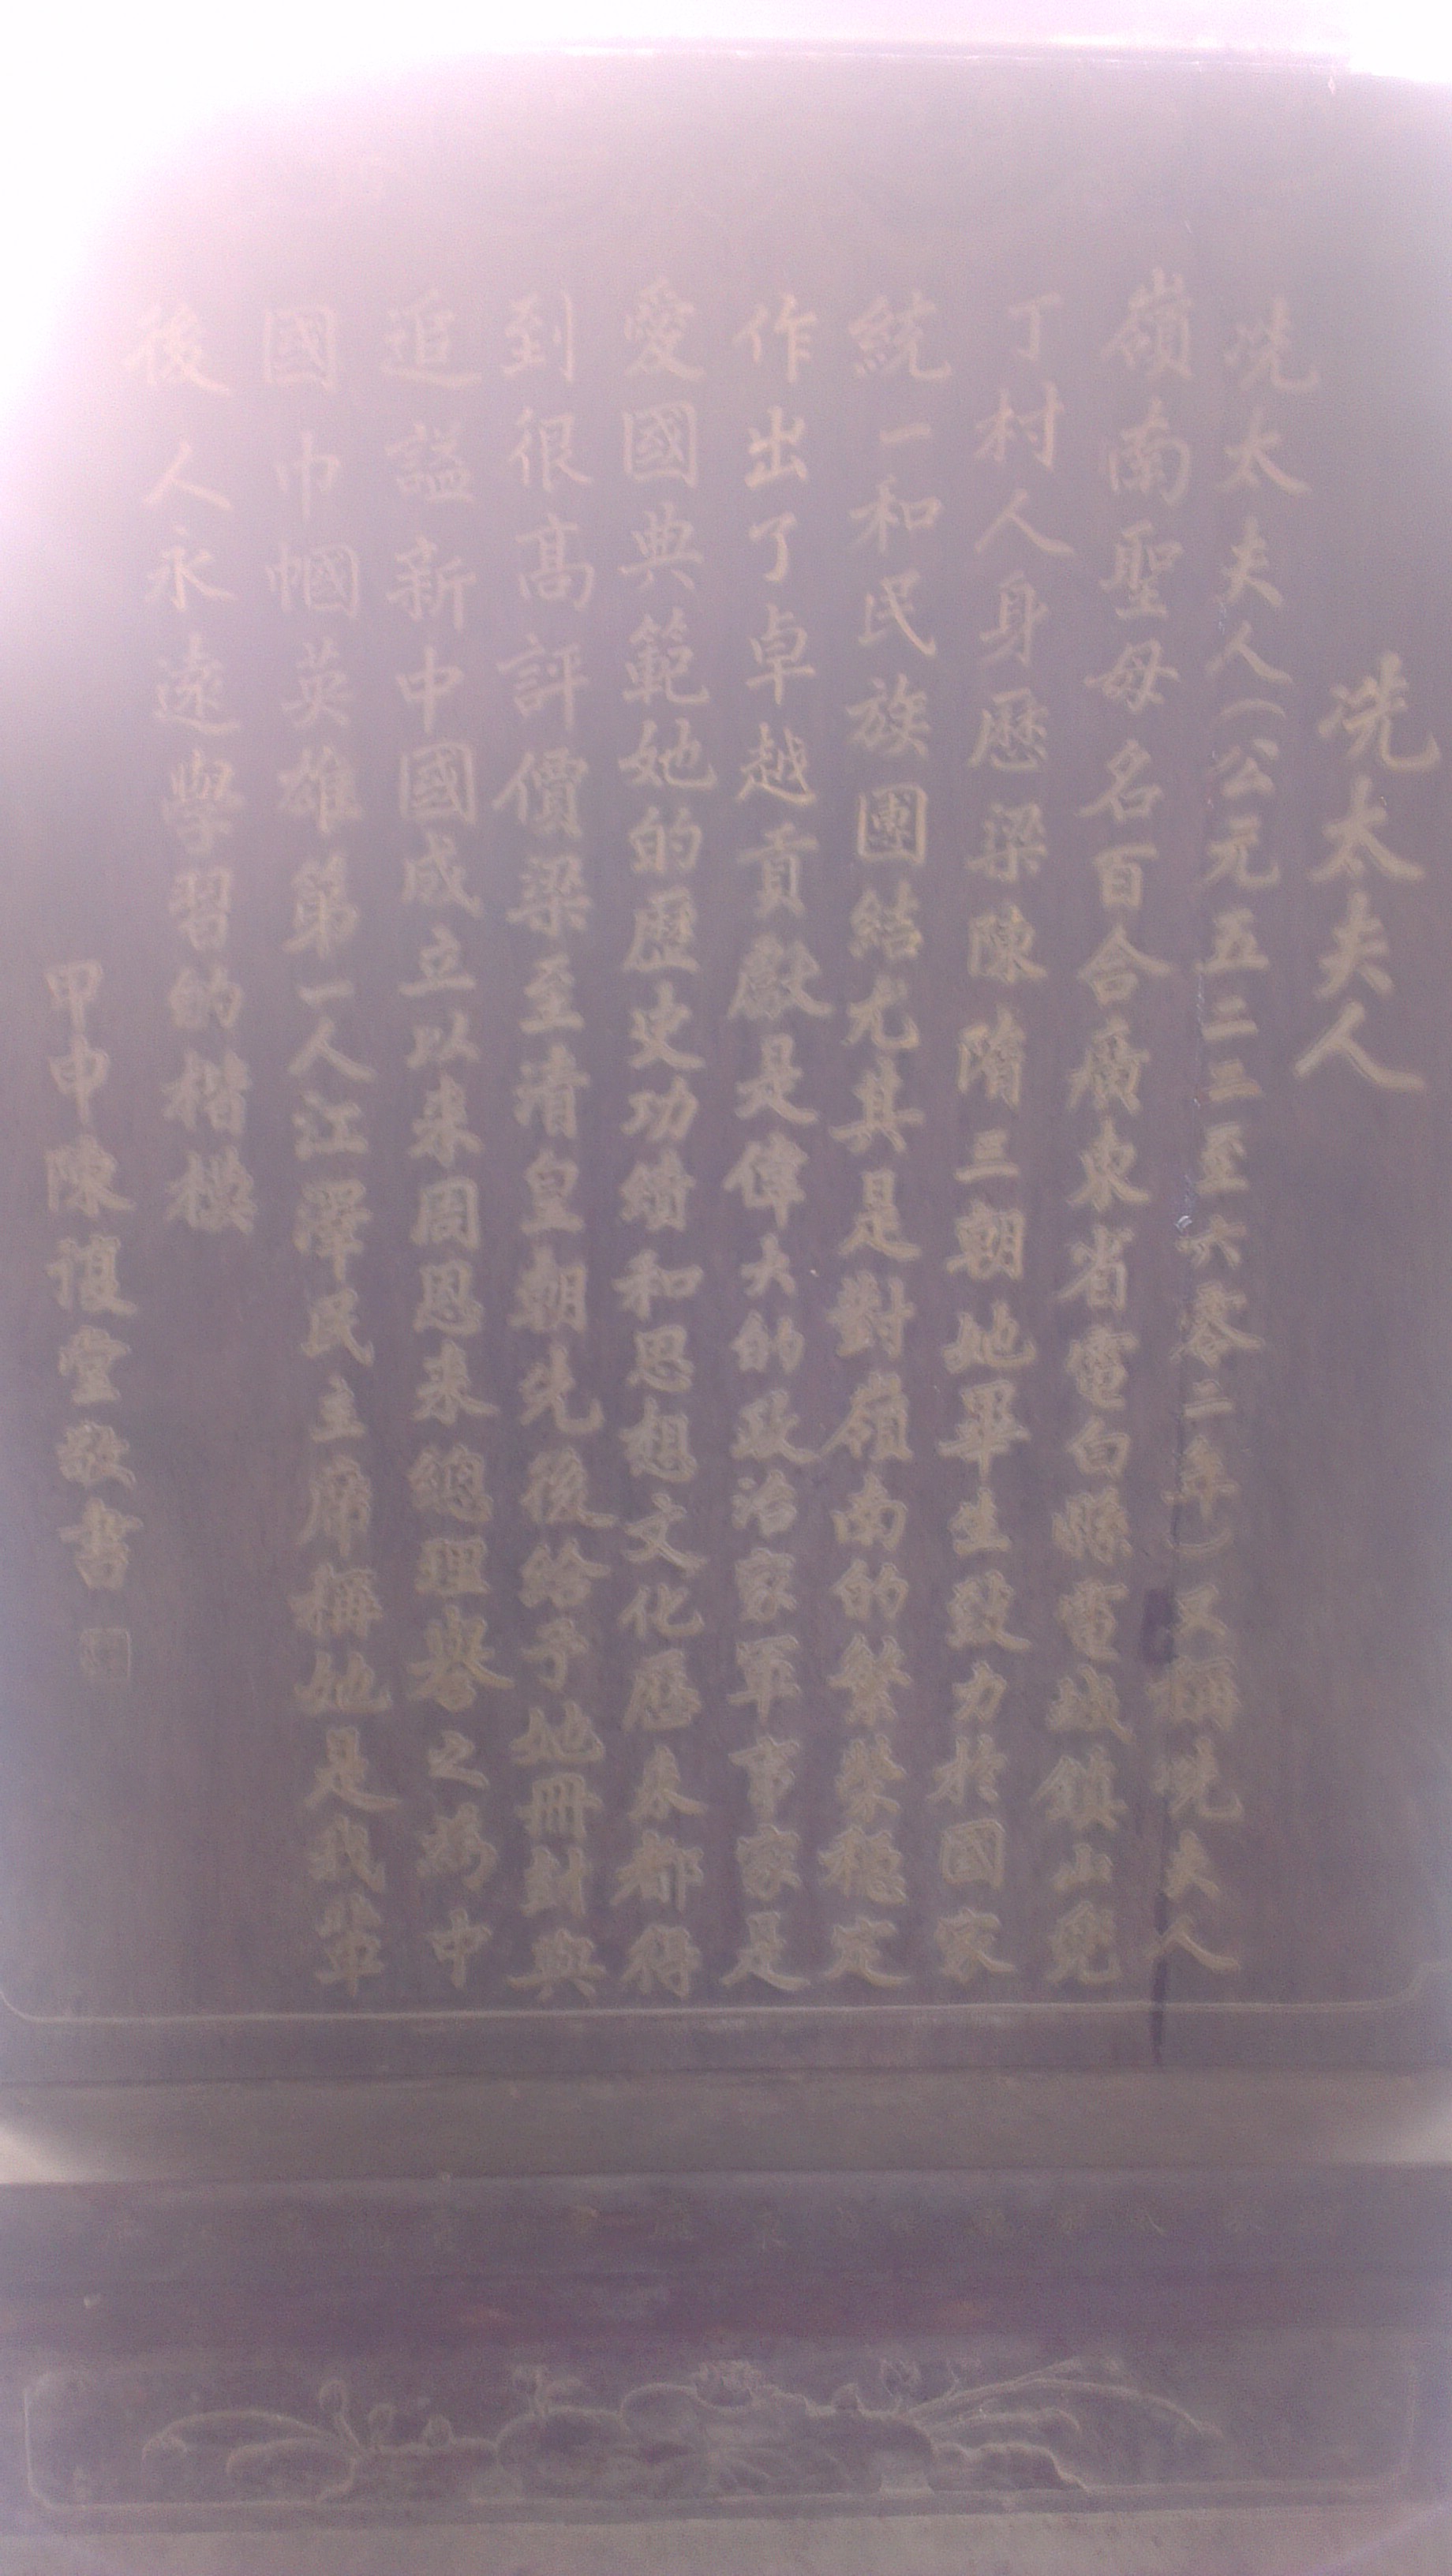 冼太夫人
冼太夫人（公元五二二至六零二年）又稱冼夫人
嶺南聖母名百合廣東省電白縣電城鎮山兜
丁村人身歷梁陳隋三朝她畢生致力於國家
統一和民族團結尤其是對嶺南的繁榮穩定
作出了卓越貢獻是偉大的政治家軍事家是
愛國典範她的歷史功績和思想文化歷來都得
到很高評價梁至清皇朝先後給予她冊封與
追謚新中國成立以來周恩來總理譽之為中
國巾幗英雄第一人江澤民主席稱她是我輩
後人永遠學習的楷模
甲申陳復堂敬書